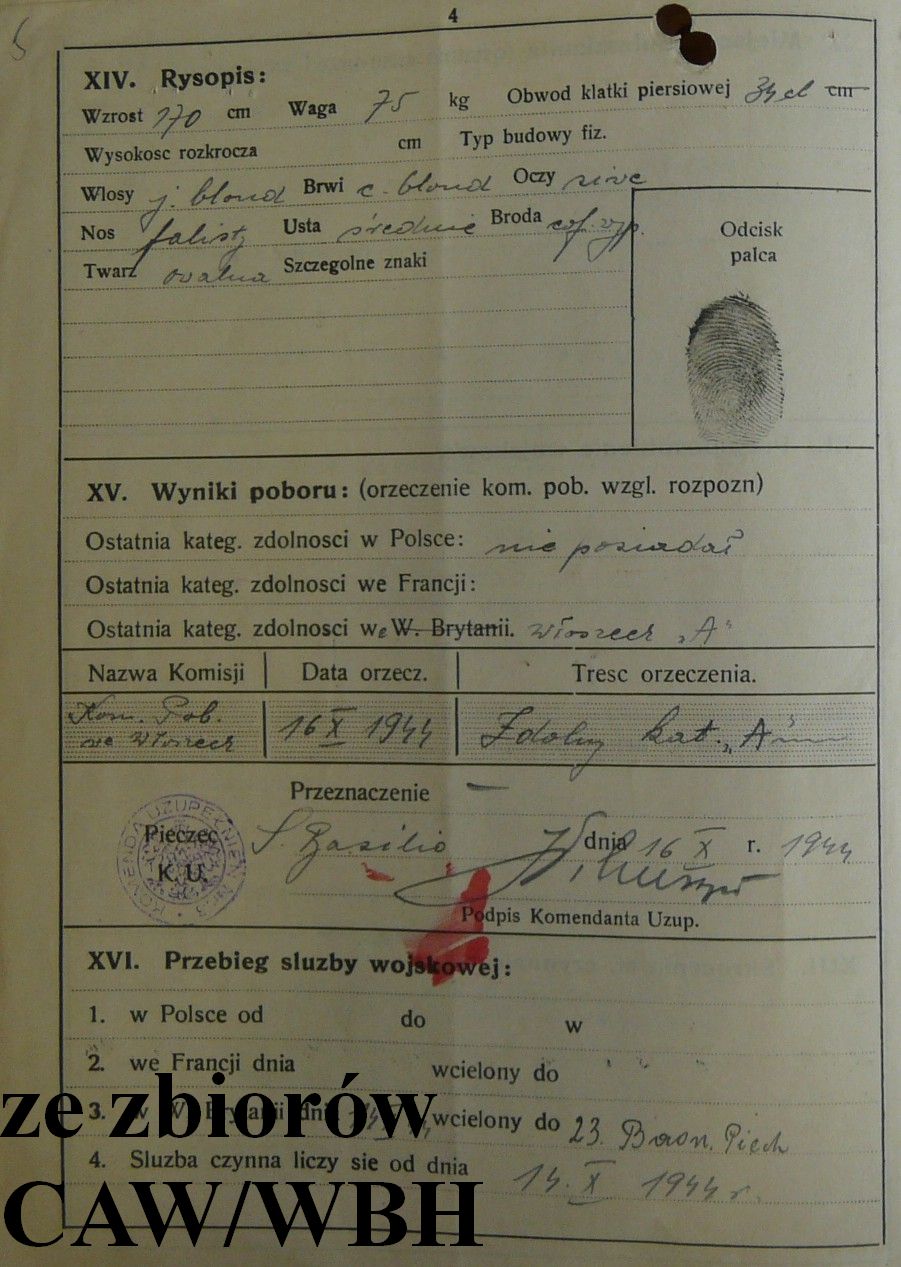 4
XIV. Rysopis:
Wzrost 170 cm Waga 75 kg Obwod klatki piersiowej cm
Wysokosc rozkrocza cm Typ budowy fiz.
Wlosy j. blond Brwi c. blond Oczy siwe
Nos falisty Usta średnie Broda
Twarz owalna Szczegolne znaki
Odcisk
palca
XV. Wyniki poboru: (orzeczenie kom. pob. wzgl. rozpozn)
Ostatnia kateg. zdolnosci w Polsce: nie posiadał
Ostatnia kateg. zdolnosci we Francji:
Ostatnia kateg. zdolnosci we W. Brytanii. Włoszech „A"
Nazwa Komisji Data orzecz. Tresc orzeczenia.
Kom. Pob. 16 X 1944 Zdolny kat. „A"
we Włoszech
Przeznaczenie —
KOMENDA UZUPEŁNIEŃ NR. 3
Pieczec S. Basilio dnia 16 X r. 1944
K. U.
Podpis Komendanta Uzup.
XVI. Przebieg sluzby wojskowej:
1. w Polsce od do w
2. we Francji dnia wcielony do
3. w W. Brytanii dnia wcielony do 23. Baon. Piech
4. Sluzba czynna liczy sie od dnia 14. X 1944 r.
ze zbiorów
CAW/WBH